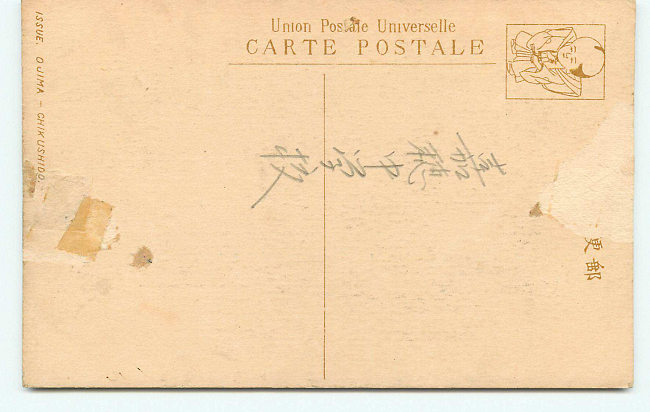 Union Postale Universelle
CARTE POSTALE
ISSUE. OJIMA – CHIKUSHIDO.
郵便